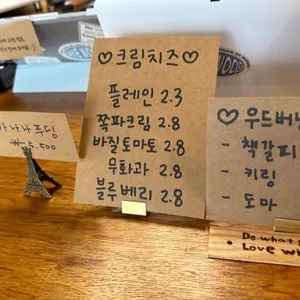 ♡크림치즈♡
플레인 2.3
쪽파크림 2.8
바질토마토 2.8
무화과 2.8
블루베리 2.8
바나나푸딩
₩5,500
♡우드버닝
- 책갈피
- 키링
- 도마
Do what
Love wh